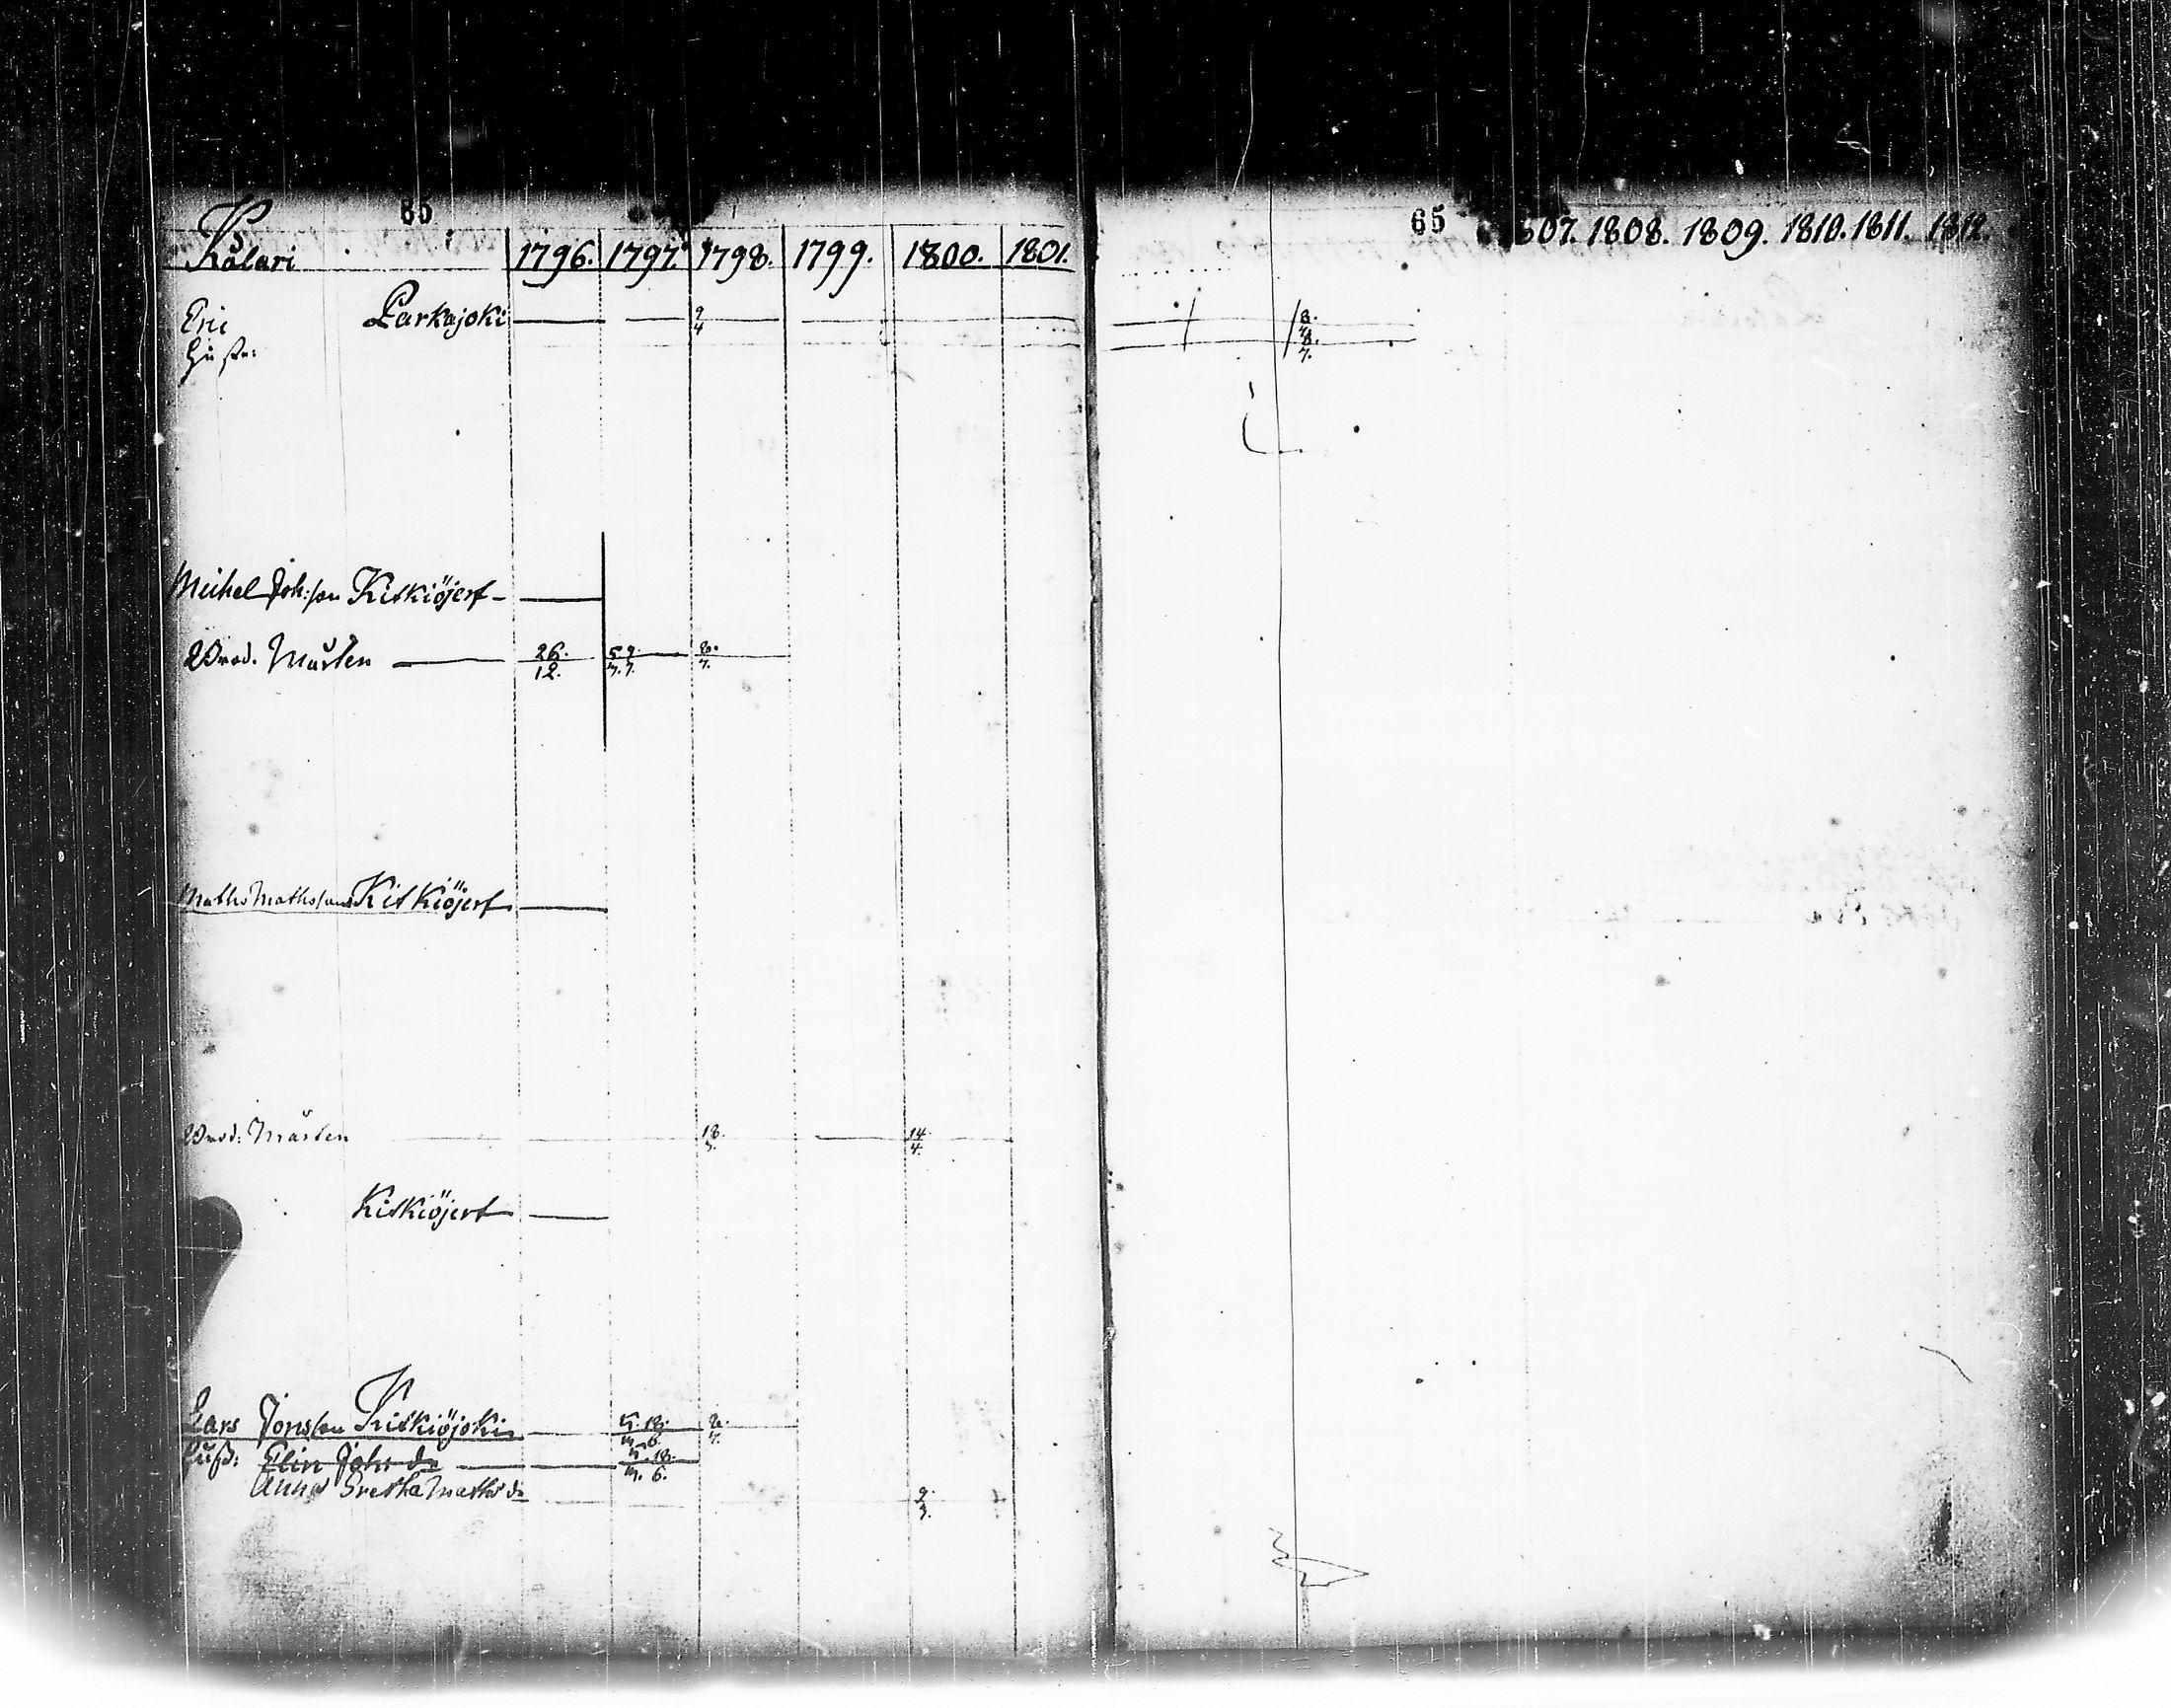 85
Kolari 1796. 1797. 1798. 1799. 1800. 1801.
Eric Parkajoki 2/4
Hustr:
Michel Joh:son Kitkiöjerf
Brod. Mårten 26./12. 5.9/7.7. 8./7.
Maths Mathsson Kitkiöjerf
Brod: Mårten 18./3. 14/4.
Kitkiöjerf
Lars Jonsson Kitkiöjoki 18./6. 8./7.
Hust: Elin Johs dr 18./6.
Anna Gretha Maths dr 2./3.
65
07. 1808. 1809. 1810. 1811. 1812.
8./7.
8./7.